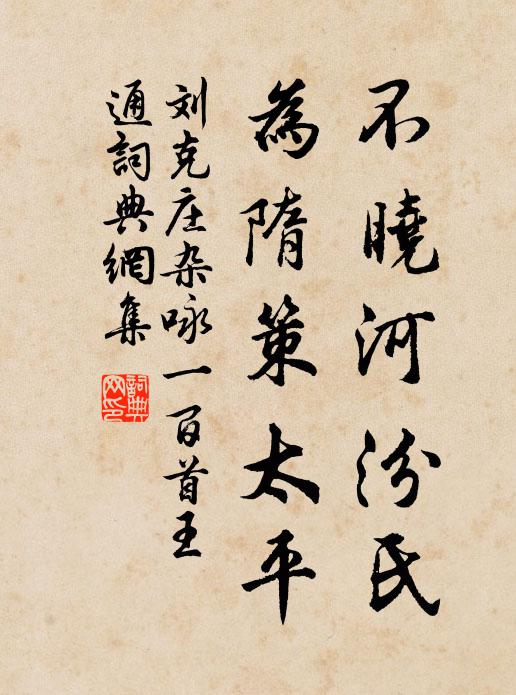 不曉河汾氏
為隋策太平
刘克庄杂咏一百首王
通詞典網集
詞典网印